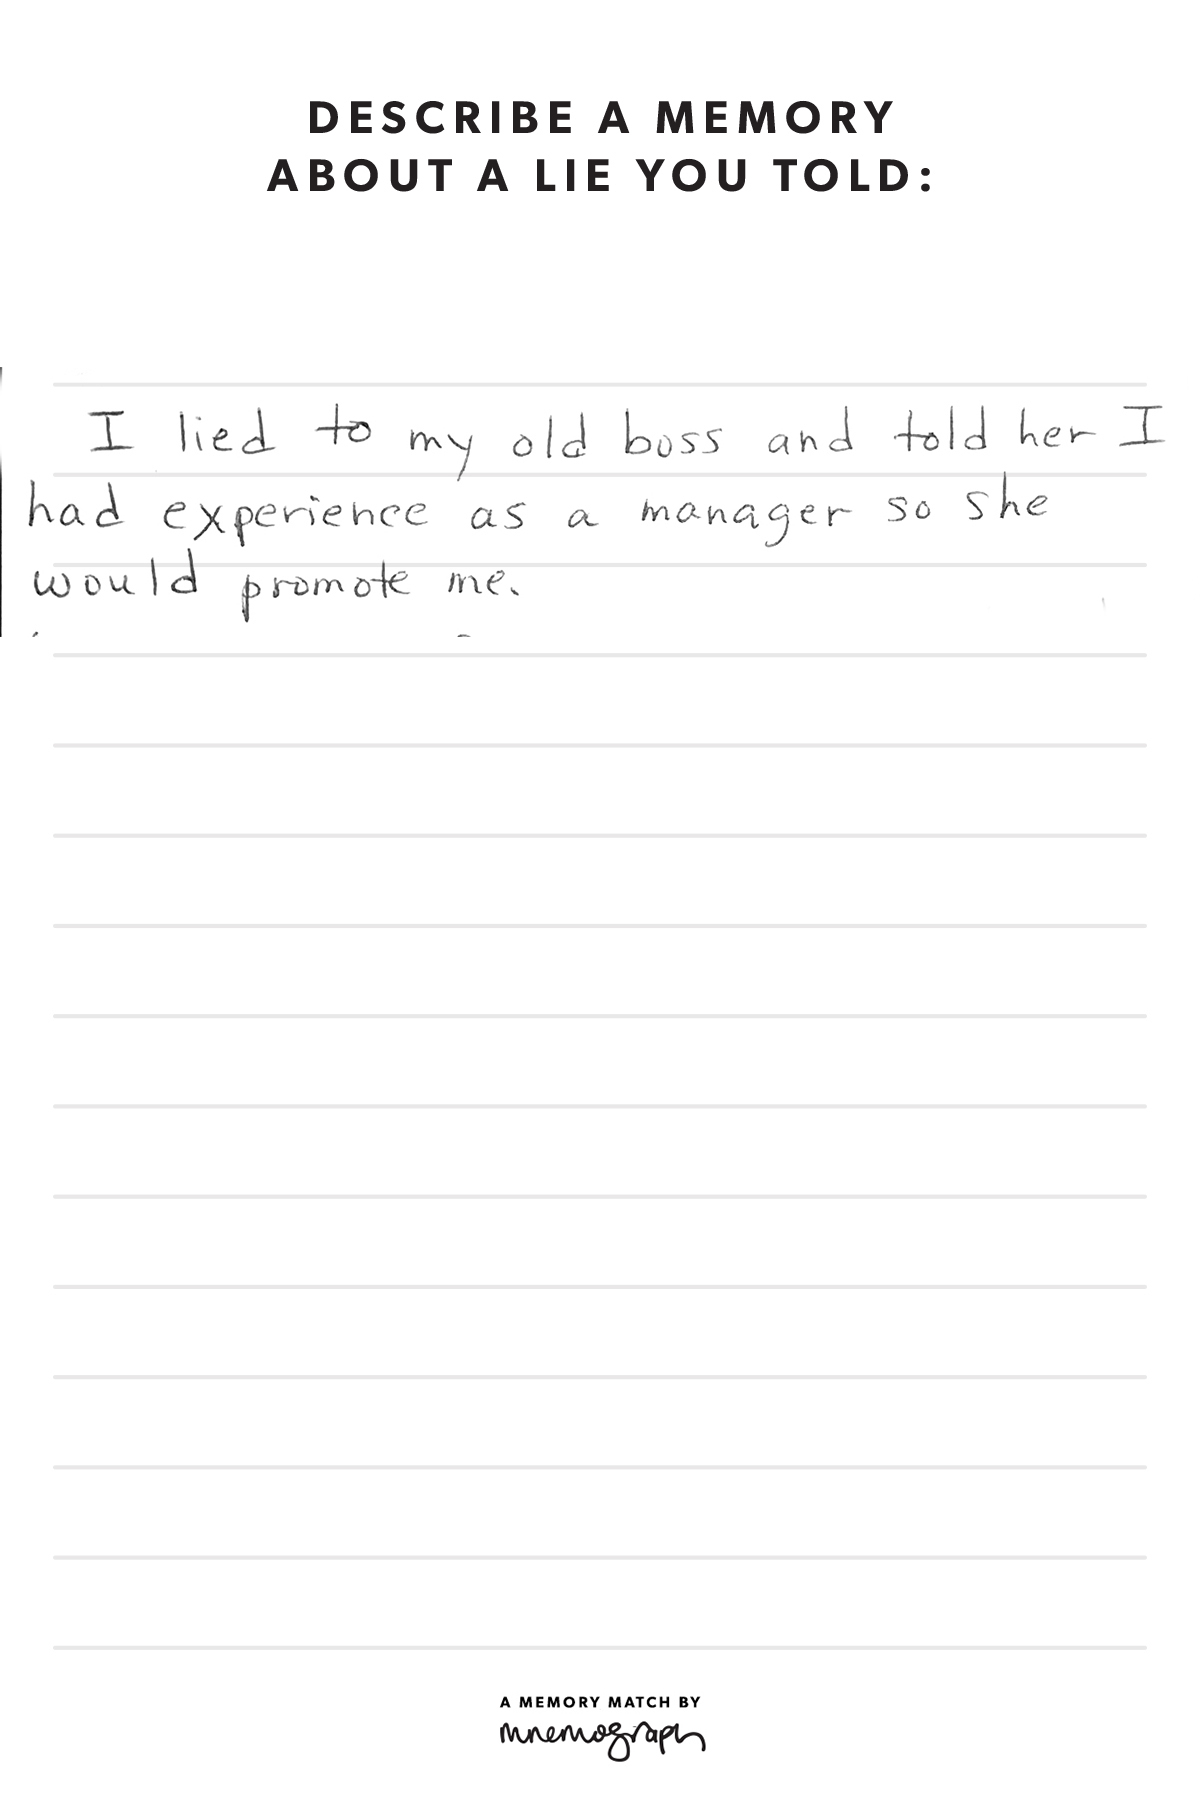 DESCRIBE A MEMORY
ABOUT A LIE YOU TOLD:
I lied to my old boss and told her I
had experience as a manager so she
would promote me.
A MEMORY MATCH BY
mnemograph